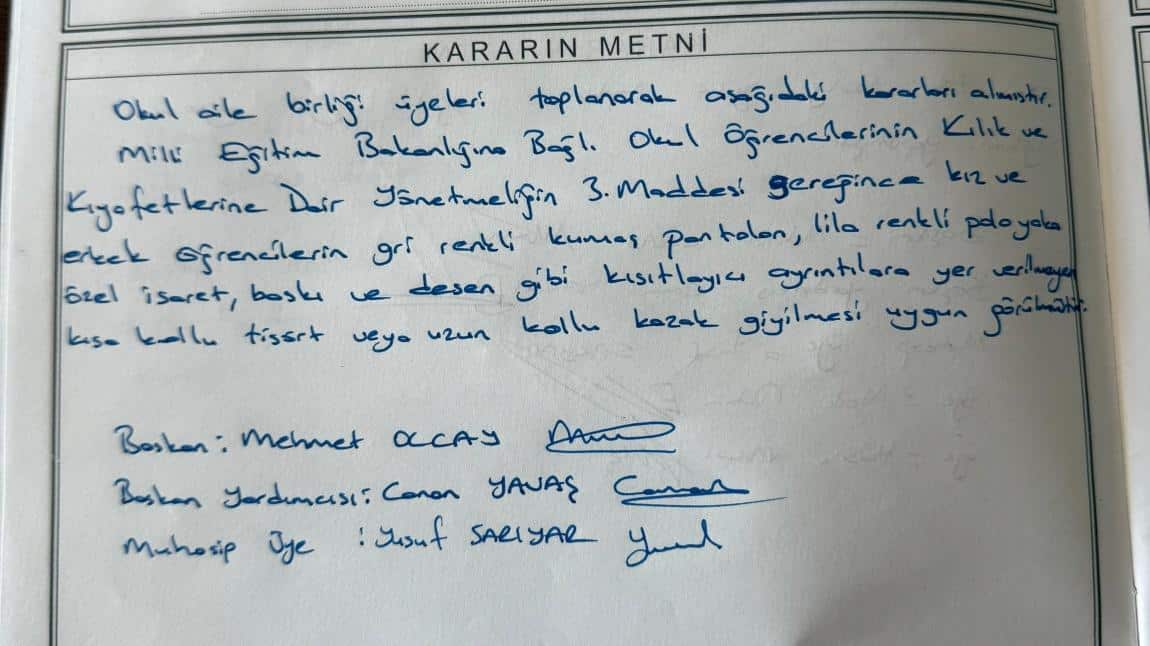 KARARIN METNİ
Okul aile birliği üyeleri toplanarak aşağıdaki kararları almıştır.
Milli Eğitim Bakanlığına Bağlı Okul Öğrencilerinin Kılık ve
Kıyafetlerine Dair Yönetmeliğin 3. Maddesi gereğince kız ve
erkek öğrencilerin gri renkli kumaş pantolon, lila renkli polo yaka
özel işaret, baskı ve desen gibi kısıtlayıcı ayrıntılara yer verilmeyen
kısa kollu tişört veya uzun kollu kazak giyilmesi uygun görülmüştür.
Başkan: Mehmet OLCAY
Başkan Yardımcısı: Canan YAVAŞ Canan
Muhasip Üye : Yusuf SARIYAR